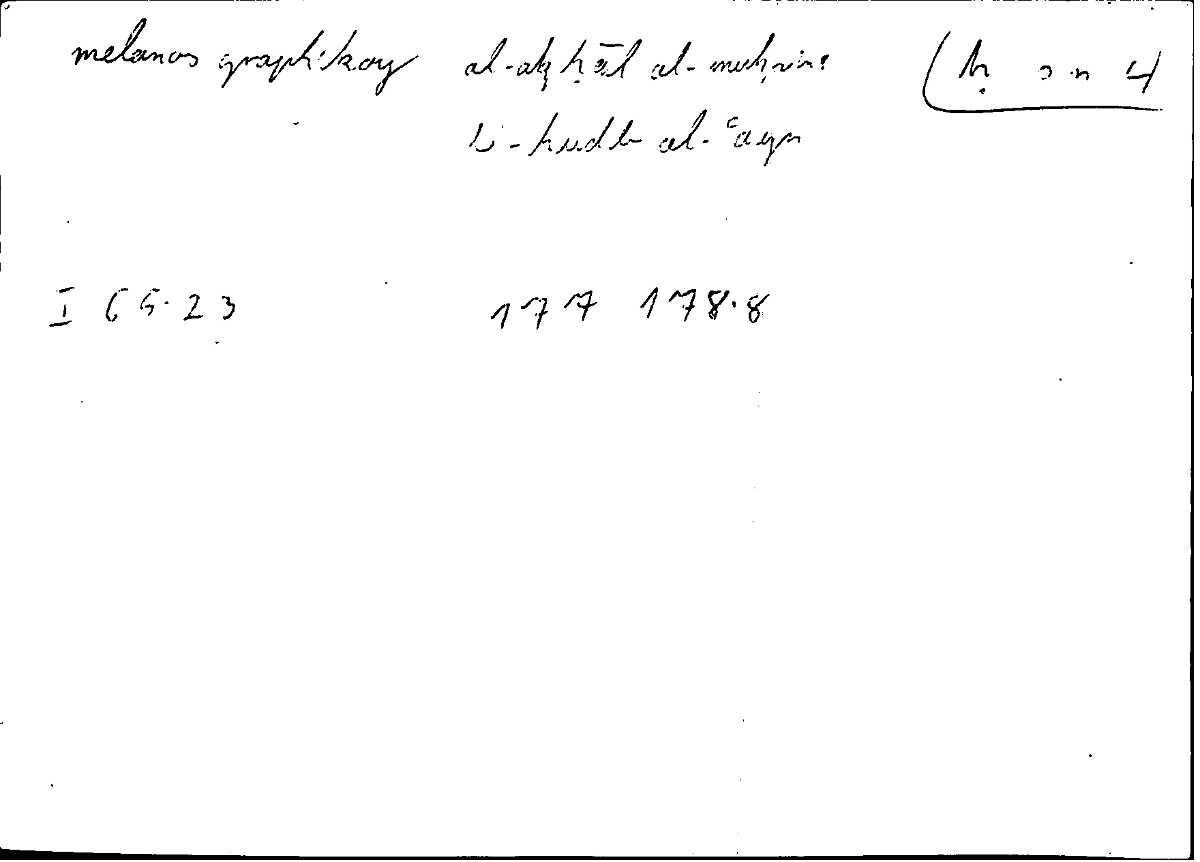 melanos graphikoy al-akḥāl al-muḥsine (ḥ s n 4
li-hudb al-ʿayn
I 65.23 177 178.8